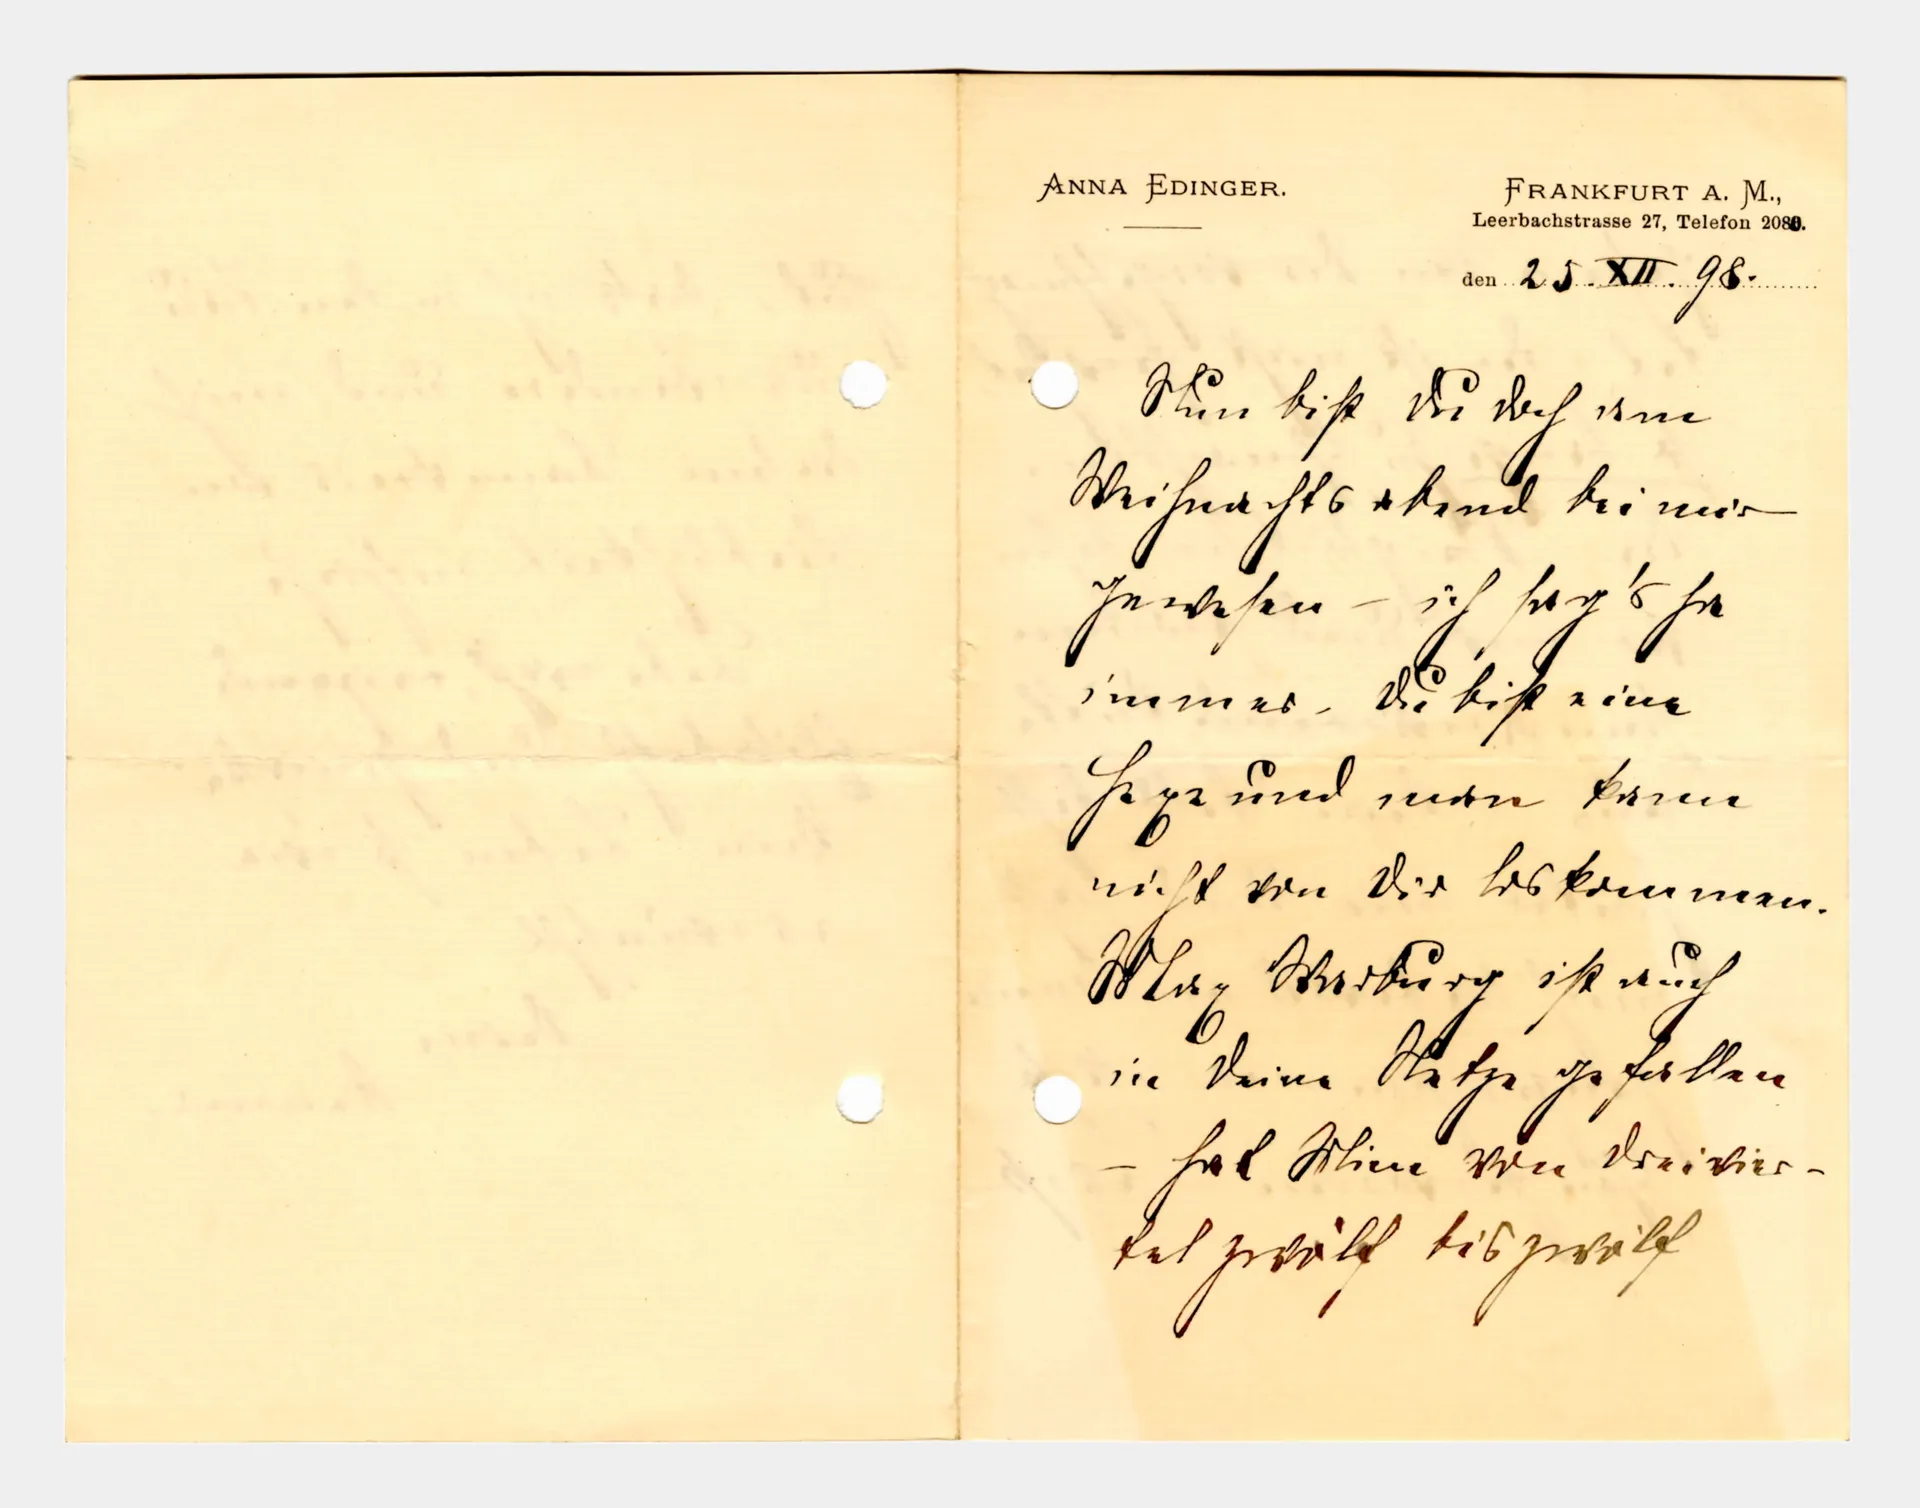 ANNA EDINGER.
FRANKFURT A. M.,
Leerbachstrasse 27, Telefon 2080.
den 25. XII. 98.
Nun bist Du doch am
Weihnachtsabend bei mir
gewesen – ich sag's ja
immer, Du bist eine
Hexe und man kann
nicht von Dir loskommen.
Max Warburg ist auch
in Deine Netze gefallen
– hat Mim von dreivier-
tel zwölf bis zwölf